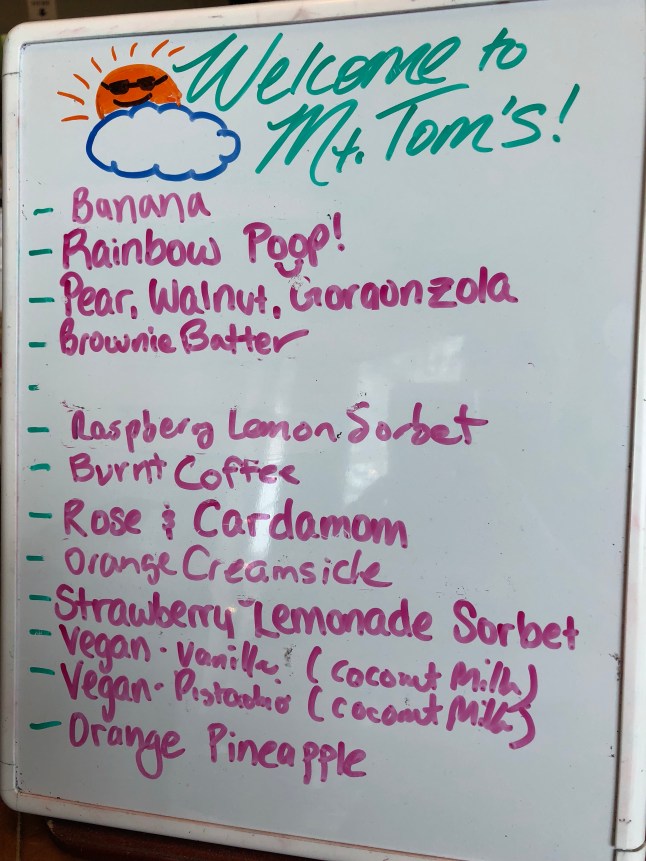 Welcome to
Mt. Tom's!
- Banana
- Rainbow Poop!
- Pear, Walnut, Gorgonzola
- Brownie Batter
-
- Raspberry Lemon Sorbet
- Burnt Coffee
- Rose & Cardamom
- Orange Creamsicle
- Strawberry Lemonade Sorbet
- Vegan - Vanilla (Coconut Milk)
- Vegan - Pistachio (Coconut Milk)
- Orange Pineapple